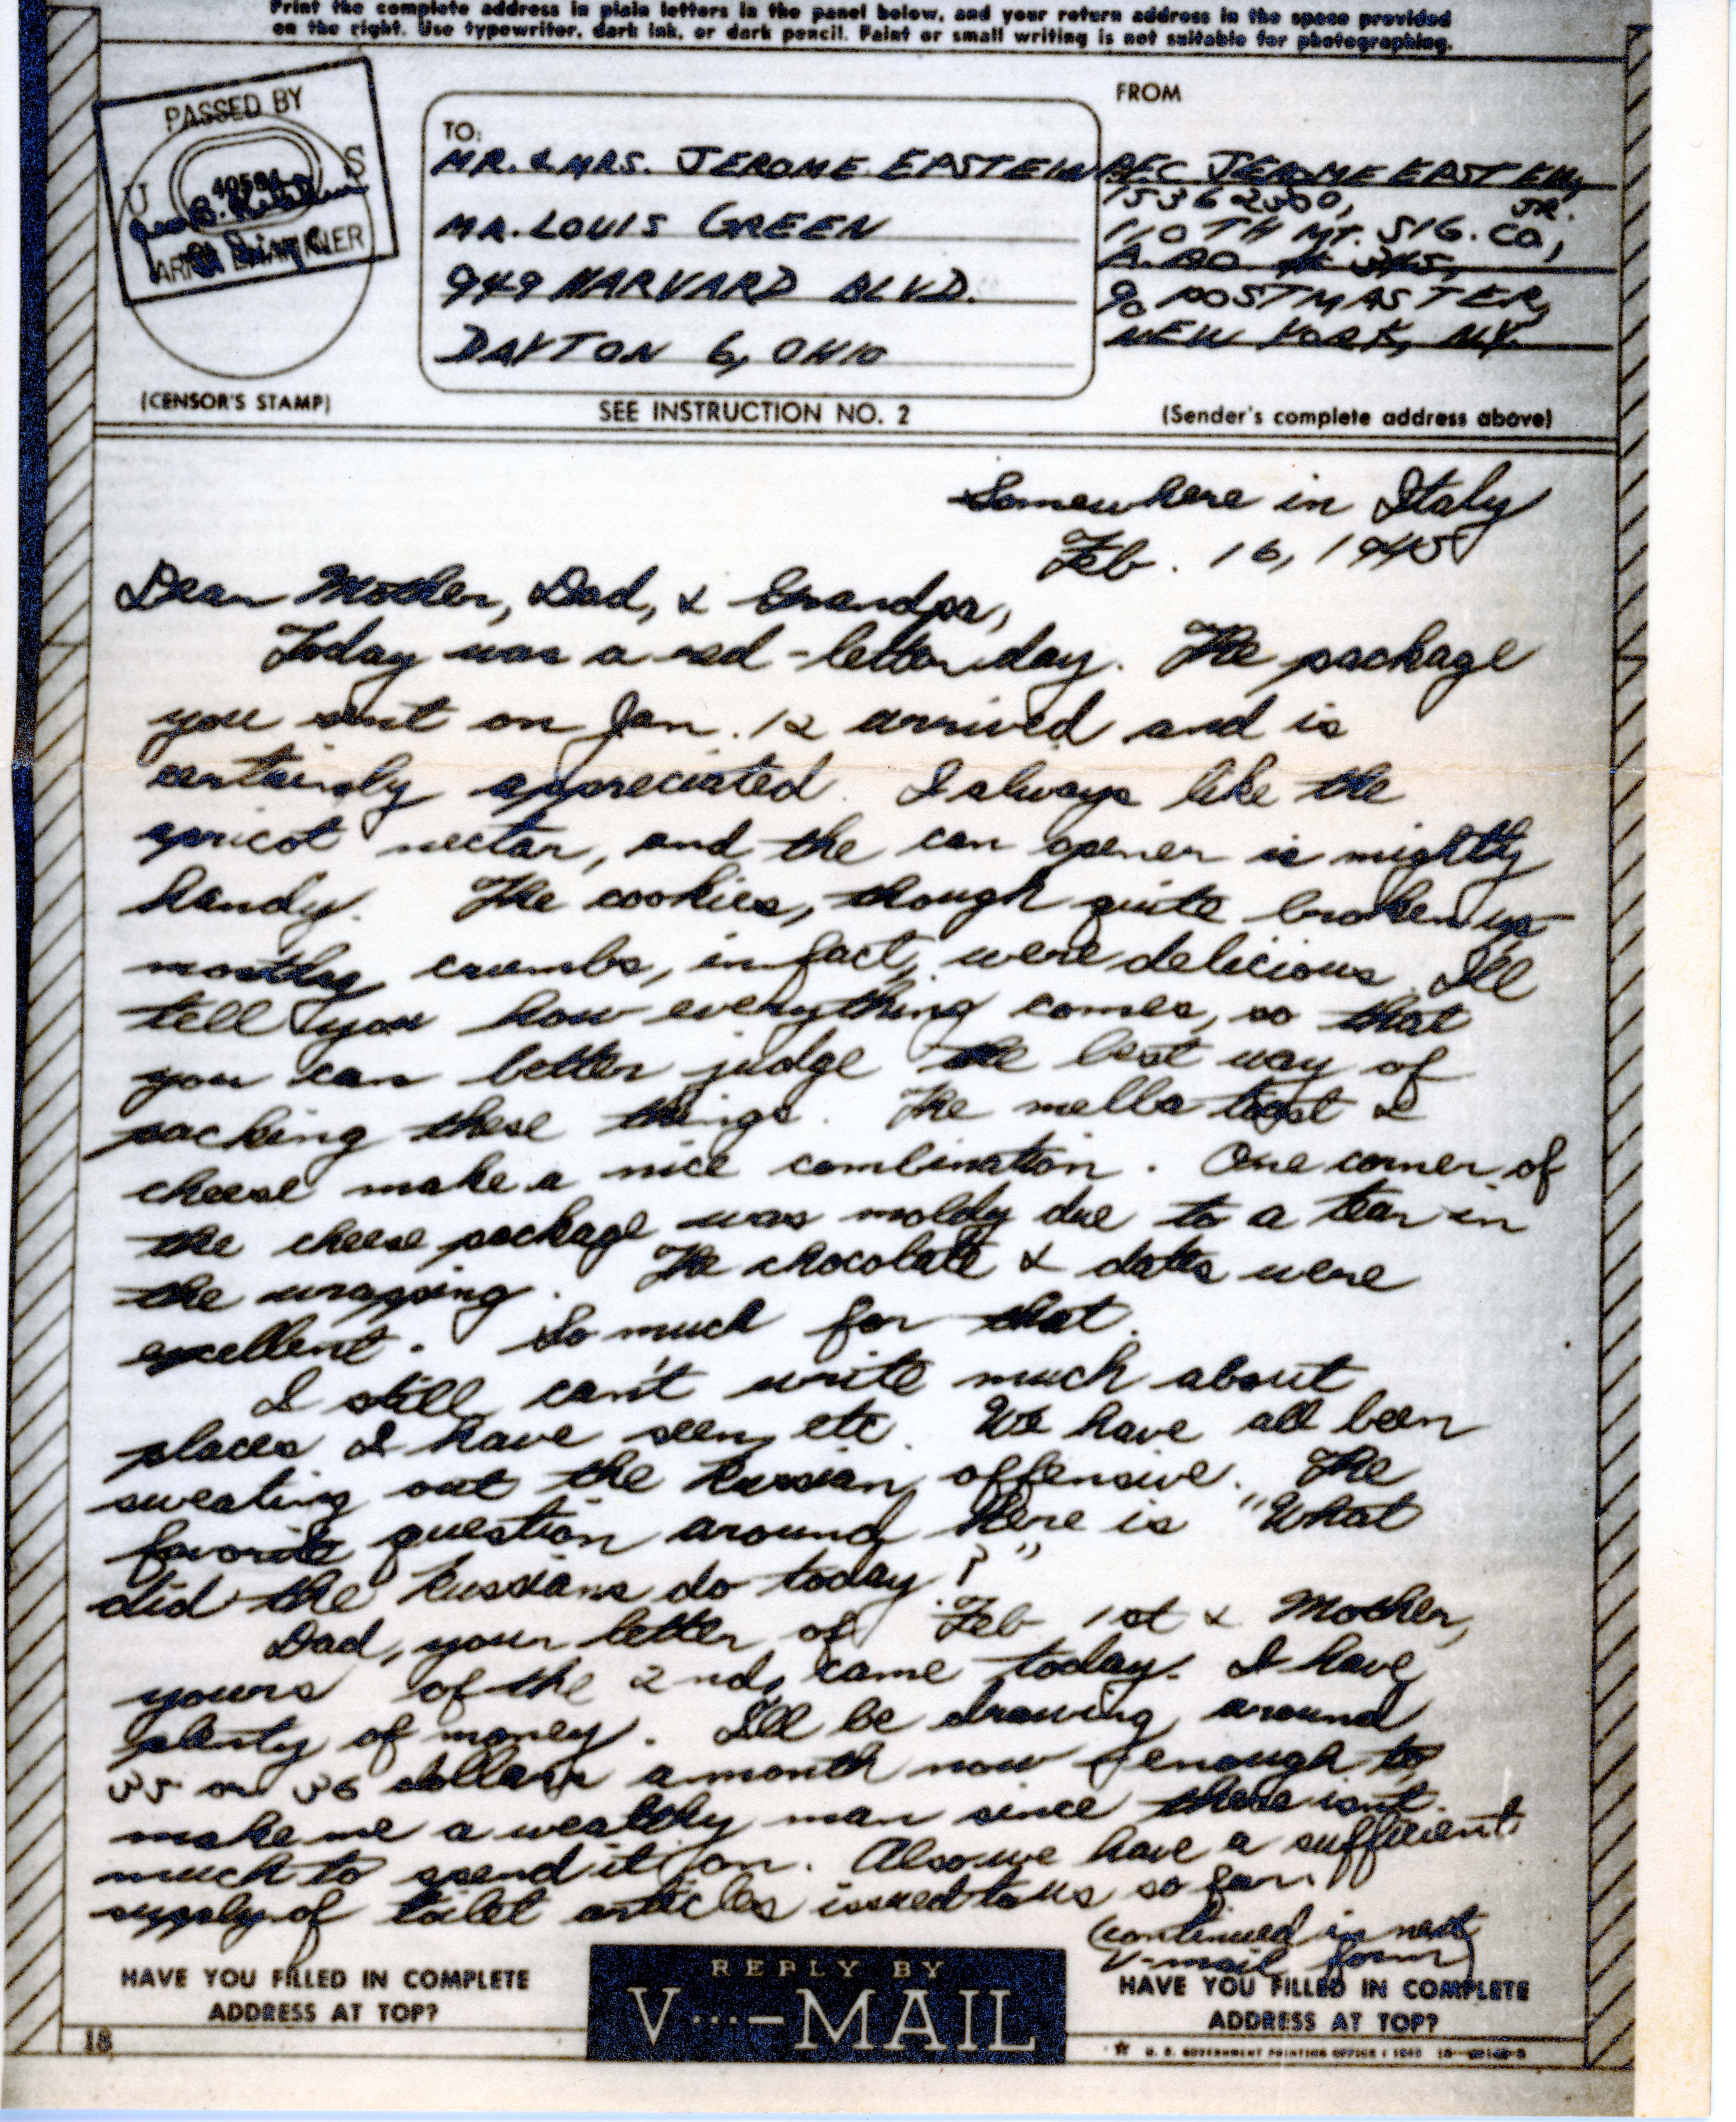 Print the complete address in plain letters in the panel below, and your return address in the space provided
on the right. Use typewriter, dark ink, or dark pencil. Faint or small writing is not suitable for photographing.
PASSED BY
U S
ARMY EXAMINER
(CENSOR'S STAMP)
TO:
MR. & MRS. JEROME EPSTEIN
MR. LOUIS GREEN
949 HARVARD BLVD.
DAYTON 6, OHIO
SEE INSTRUCTION NO. 2
FROM
PFC JEROME EPSTEIN,
JR.
15362300,
110TH MT. SIG. CO,
A.P.O. # 345,
% POSTMASTER,
NEW YORK, N.Y.
(Sender's complete address above)
Somewhere in Italy
Feb. 16, 1945
Dear Mother, Dad, & Grandpa,
Today was a red-letter day. The package
you sent on Jan. 12 arrived and is
certainly appreciated. I always like the
apricot nectar, and the can opener is mighty
handy. The cookies, though quite broken up
mostly crumbs, in fact, were delicious. I'll
tell you how everything comes, so that
you can better judge the best way of
packing these things. The mella toast &
cheese make a nice combination. One corner of
the cheese package was moldy due to a tear in
the wrapping. The chocolate & dates were
excellent. So much for that.
I still can't write much about
places I have seen, etc. We have all been
sweating out the Russian offensive. The
favorite question around here is "What
did the Russians do today?"
Dad, your letter of Feb 1st & Mother,
yours of the 2nd, came today. I have
plenty of money. I'll be drawing around
35 or 36 dollars a month now enough to
make me a wealthy man since there isn't
much to spend it on. Also we have a sufficient
supply of toilet articles issued to us so far.
(continued in next
V-mail form)
HAVE YOU FILLED IN COMPLETE
ADDRESS AT TOP?
REPLY BY
V···—MAIL
HAVE YOU FILLED IN COMPLETE
ADDRESS AT TOP?
18
U. S. GOVERNMENT PRINTING OFFICE : 1943